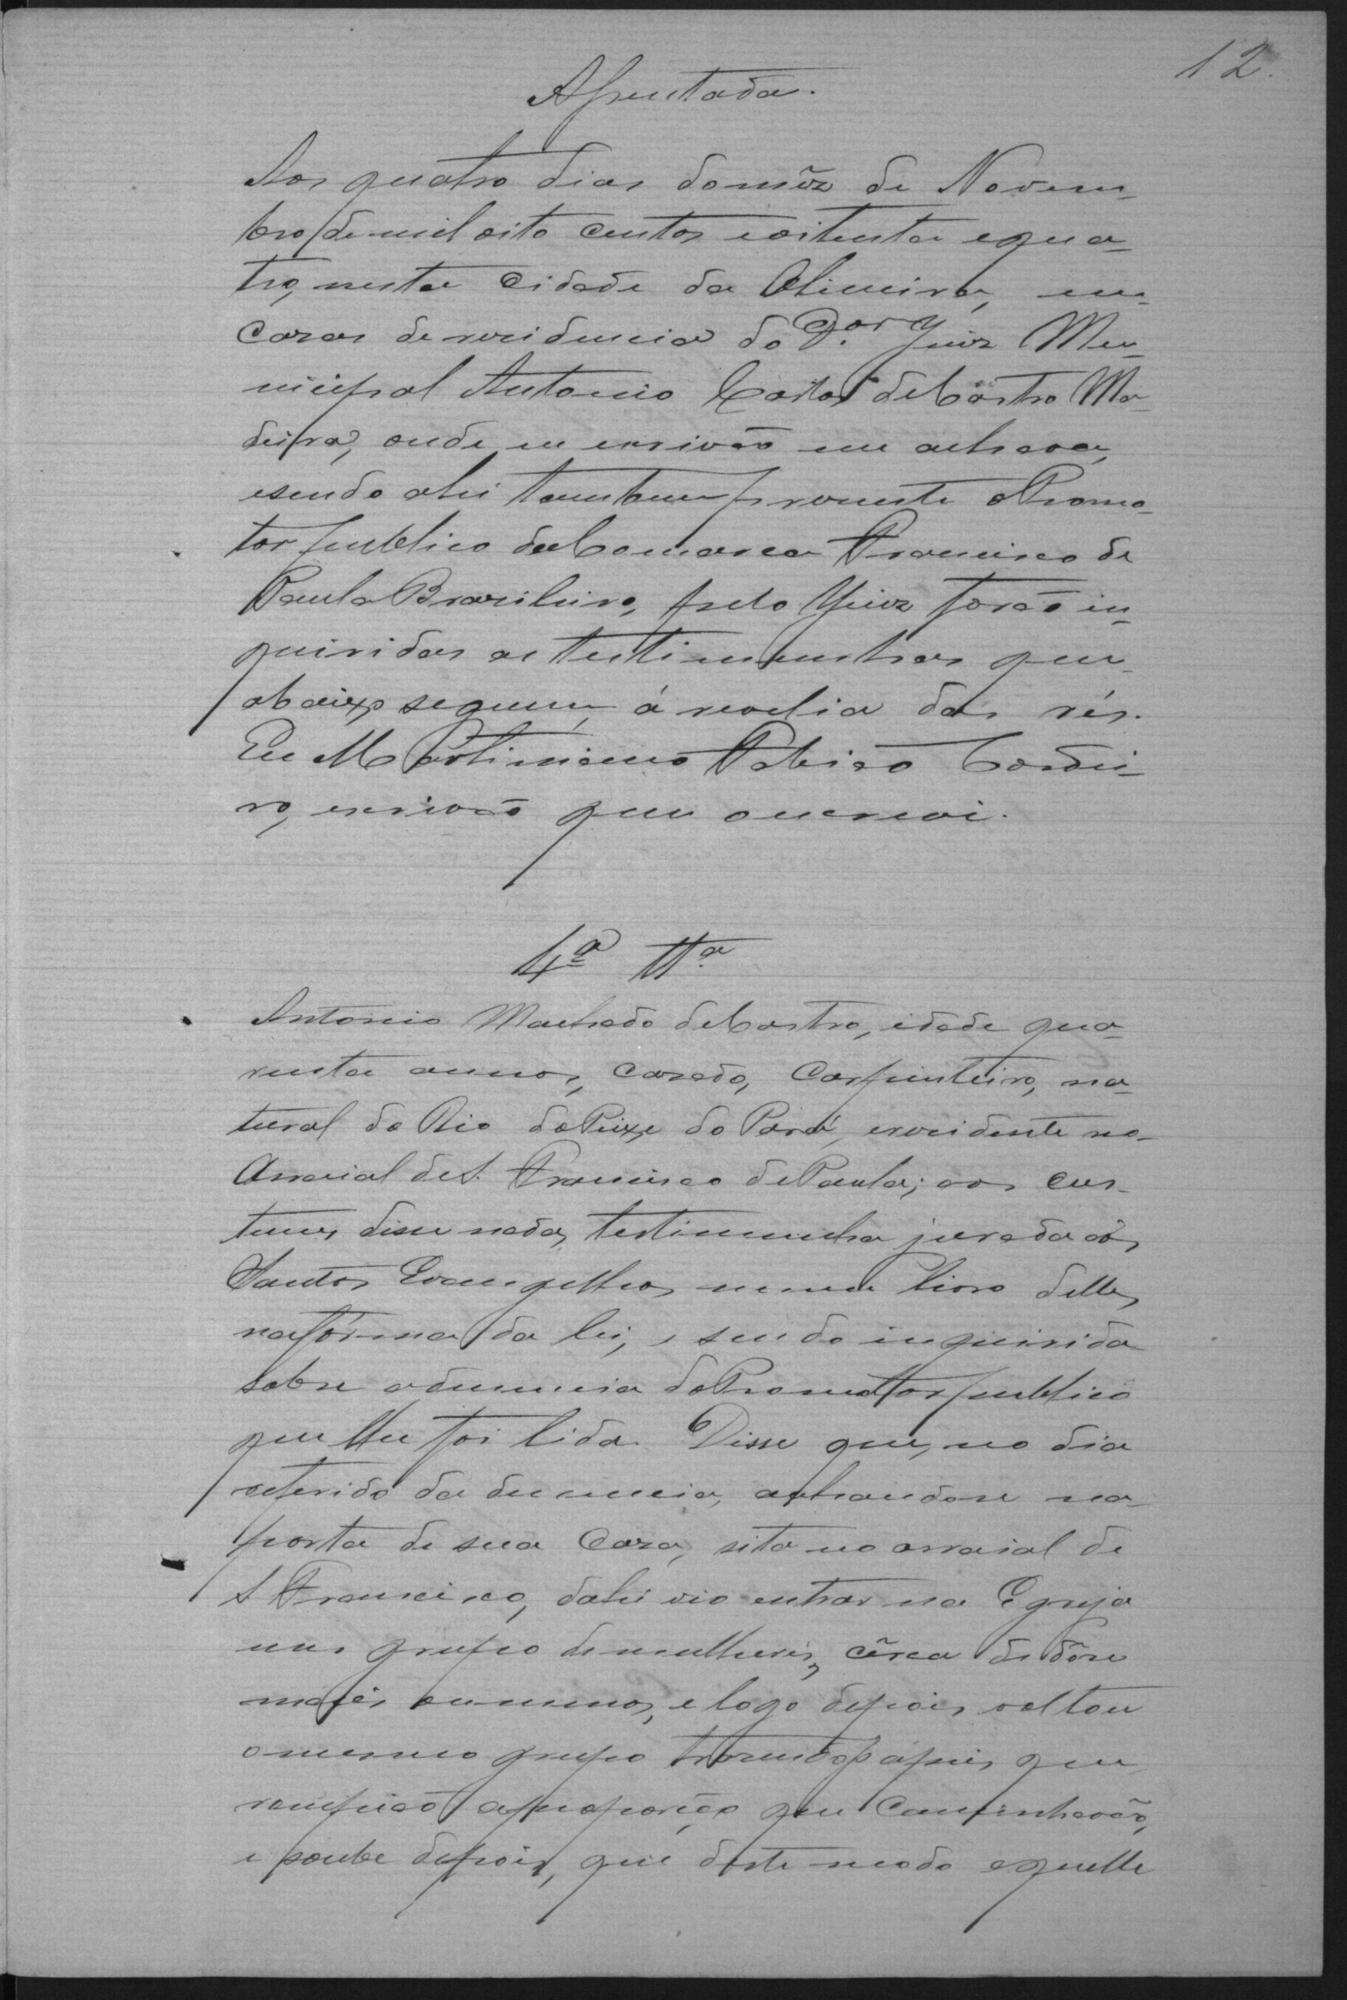 12.
Assentada.
Aos quatro dias do mêz de Novem-
bro de mil oito centos e oitenta e qua-
tro, nesta Cidade da Oliveira, em
cazas de rezidencia do D.or Juiz Mu-
nicipal Antonio Carlos de Castro Ma-
deira, onde eu escrivão me achava,
e sendo ahi tambem prezente o Promo-
tor publico da Comarca Francisco de
Paula Brazileiro, pelo Juiz forão in-
quiridas as testimunhas que
abaixo seguem, á revelia das rés.
Eu Martiniano Fabião Cordei-
ro, escrivão que o escrevi.
4ª Ttª
Antonio Machado de Castro, idade qua-
renta annos, cazado, Carpinteiro, na-
tural do Rio do Peixe do Pará, e rezidente no
Arraial de S. Francisco de Paula; aos cus-
tumes disse nada, testimunha jurada aos
Santos Evangelhos em um livro delles
na fórma da lei, e sendo inquirida
sobre a denuncia do Promottor publico
que lhe foi lida. Disse que, no dia
referido da denuncia, achandose na
porta de sua Caza, sita no arraial de
S Francisco, dahi vio entrar na Egreja
um grupo de mulheres, cêrca de dôse
mais ou menos, e logo depois voltou
o mesmo grupo trazendo papeis que
rompião a proporção que Caminhavão,
e soube depois, que deste modo aquelle